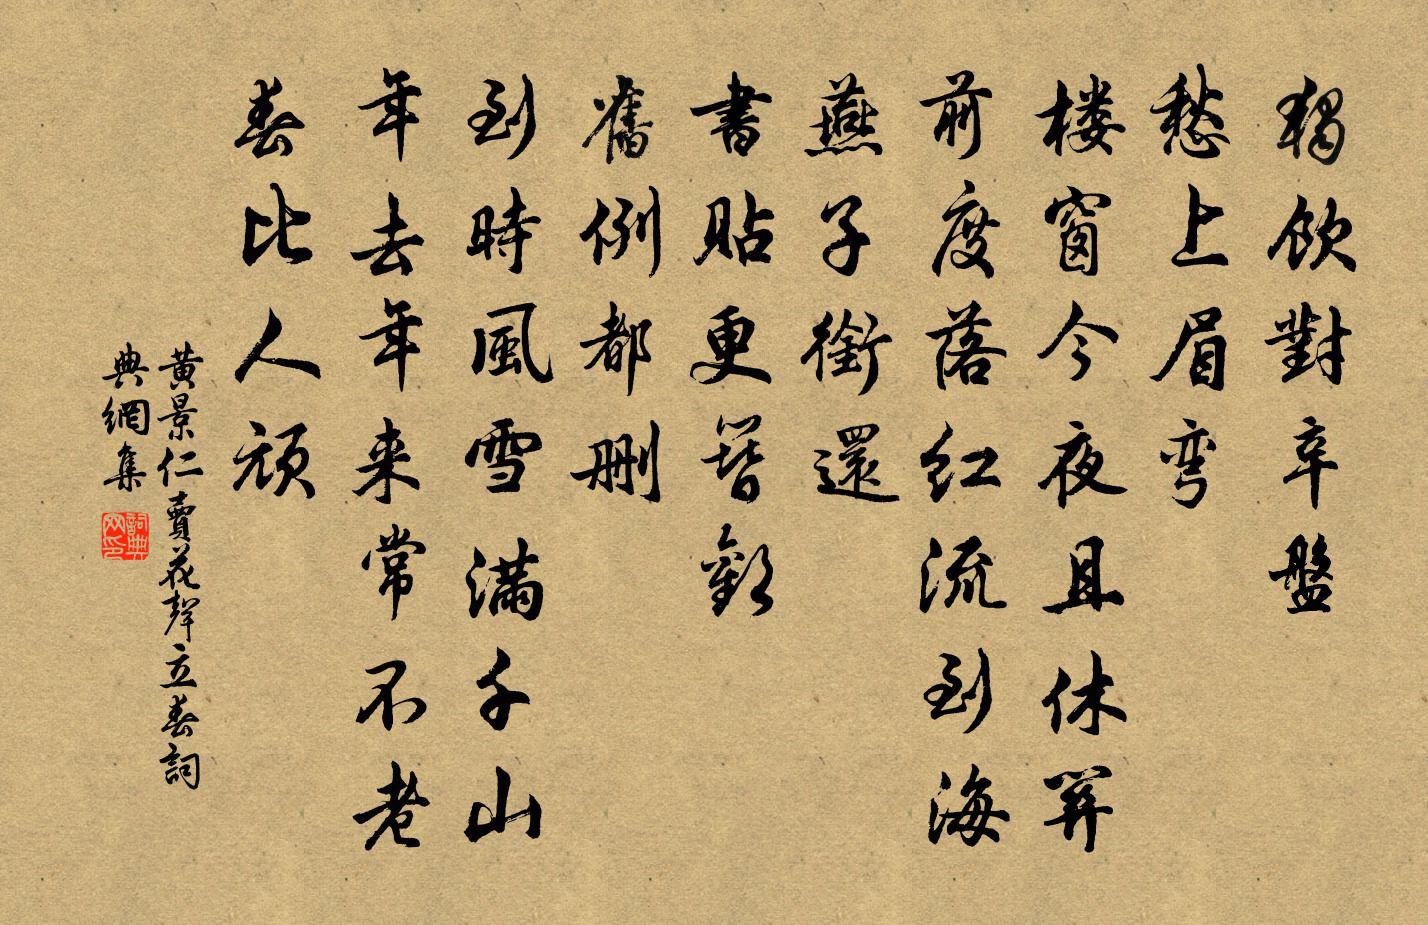 獨飲對辛盤
愁上眉彎
樓窗今夜且休關
前度落紅流到海
燕子銜還
書貼更簪歡
舊例都刪
到時風雪滿千山
年去年来常不老
春比人頑
黄景仁賣花聲立春詞
典網集
詞典网印